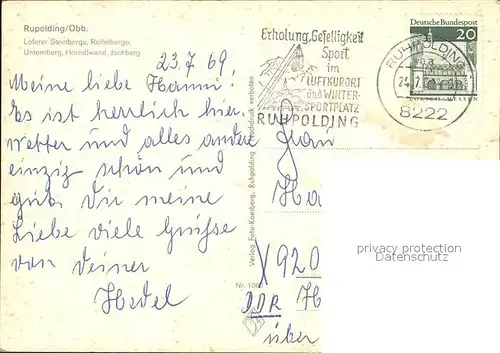 Rupolding/Obb.
Loferer Steinberge, Reifelberge,
Unternberg, Hörndlwand, Jochberg
23.7.69.
Meine liebe Hanni!
Es ist herrlich hier,
Wetter und alles andere
einzig schön und
gut. Dir meine
Liebe viele Grüsse
von Deiner
Hedel
Erholung, Geselligkeit
Sport
im
LUFTKURORT
und WINTER-
SPORTPLATZ
RUHPOLDING
RUHPOLDING
24.7.
8222
Deutsche Bundespost
20
Nachdruck verboten
Ruhpolding
Verlag Foto
Nr.
Frau
Ha
X 920
DDR H
über
privacy protection
Datenschutz